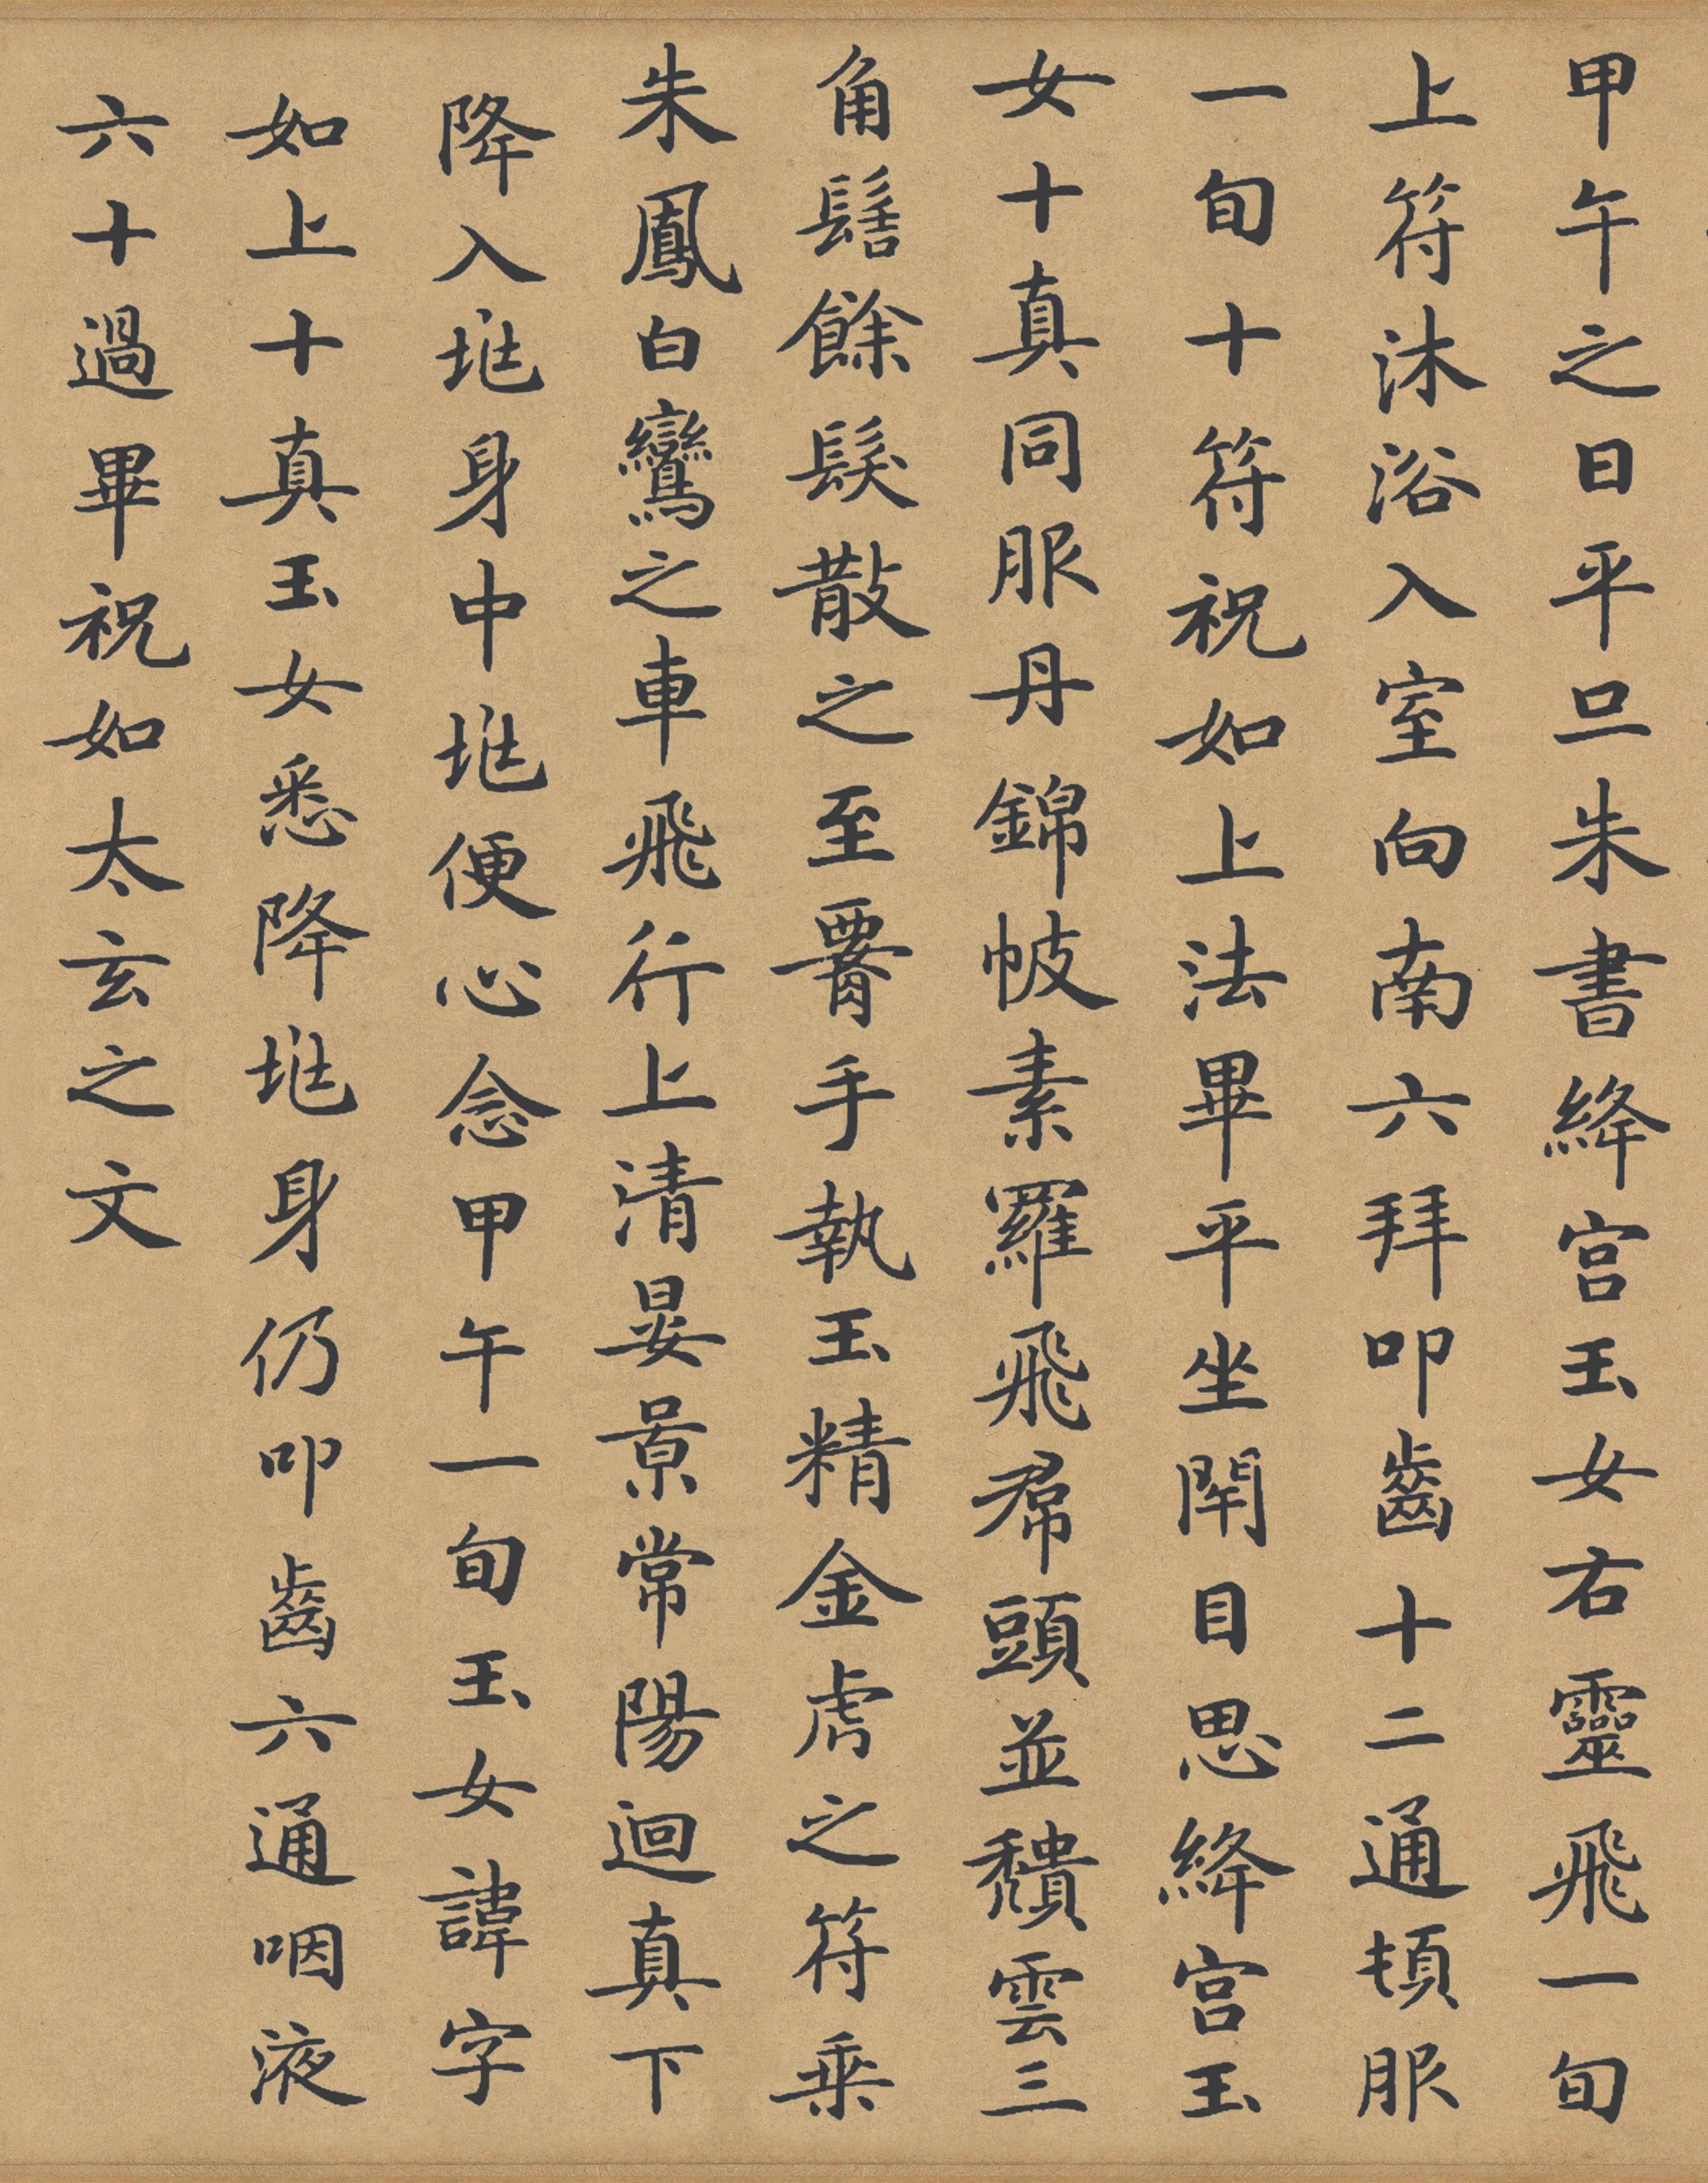 甲午之日平旦朱書絳宮玉女右靈飛一旬
上符沐浴入室向南六拜叩齒十二通頓服
一旬十符祝如上法畢平坐閇目思絳宮玉
女十真同服丹錦帔素羅飛帬頭並頹雲三
角髻餘髮散之至署手執玉精金虎之符乗
朱鳳白鸞之車飛行上清晏景常陽迴真下
降入𡊮身中𡊮便心念甲午一旬玉女諱字
如上十真玉女悉降𡊮身仍叩齒六通咽液
六十過畢祝如太玄之文